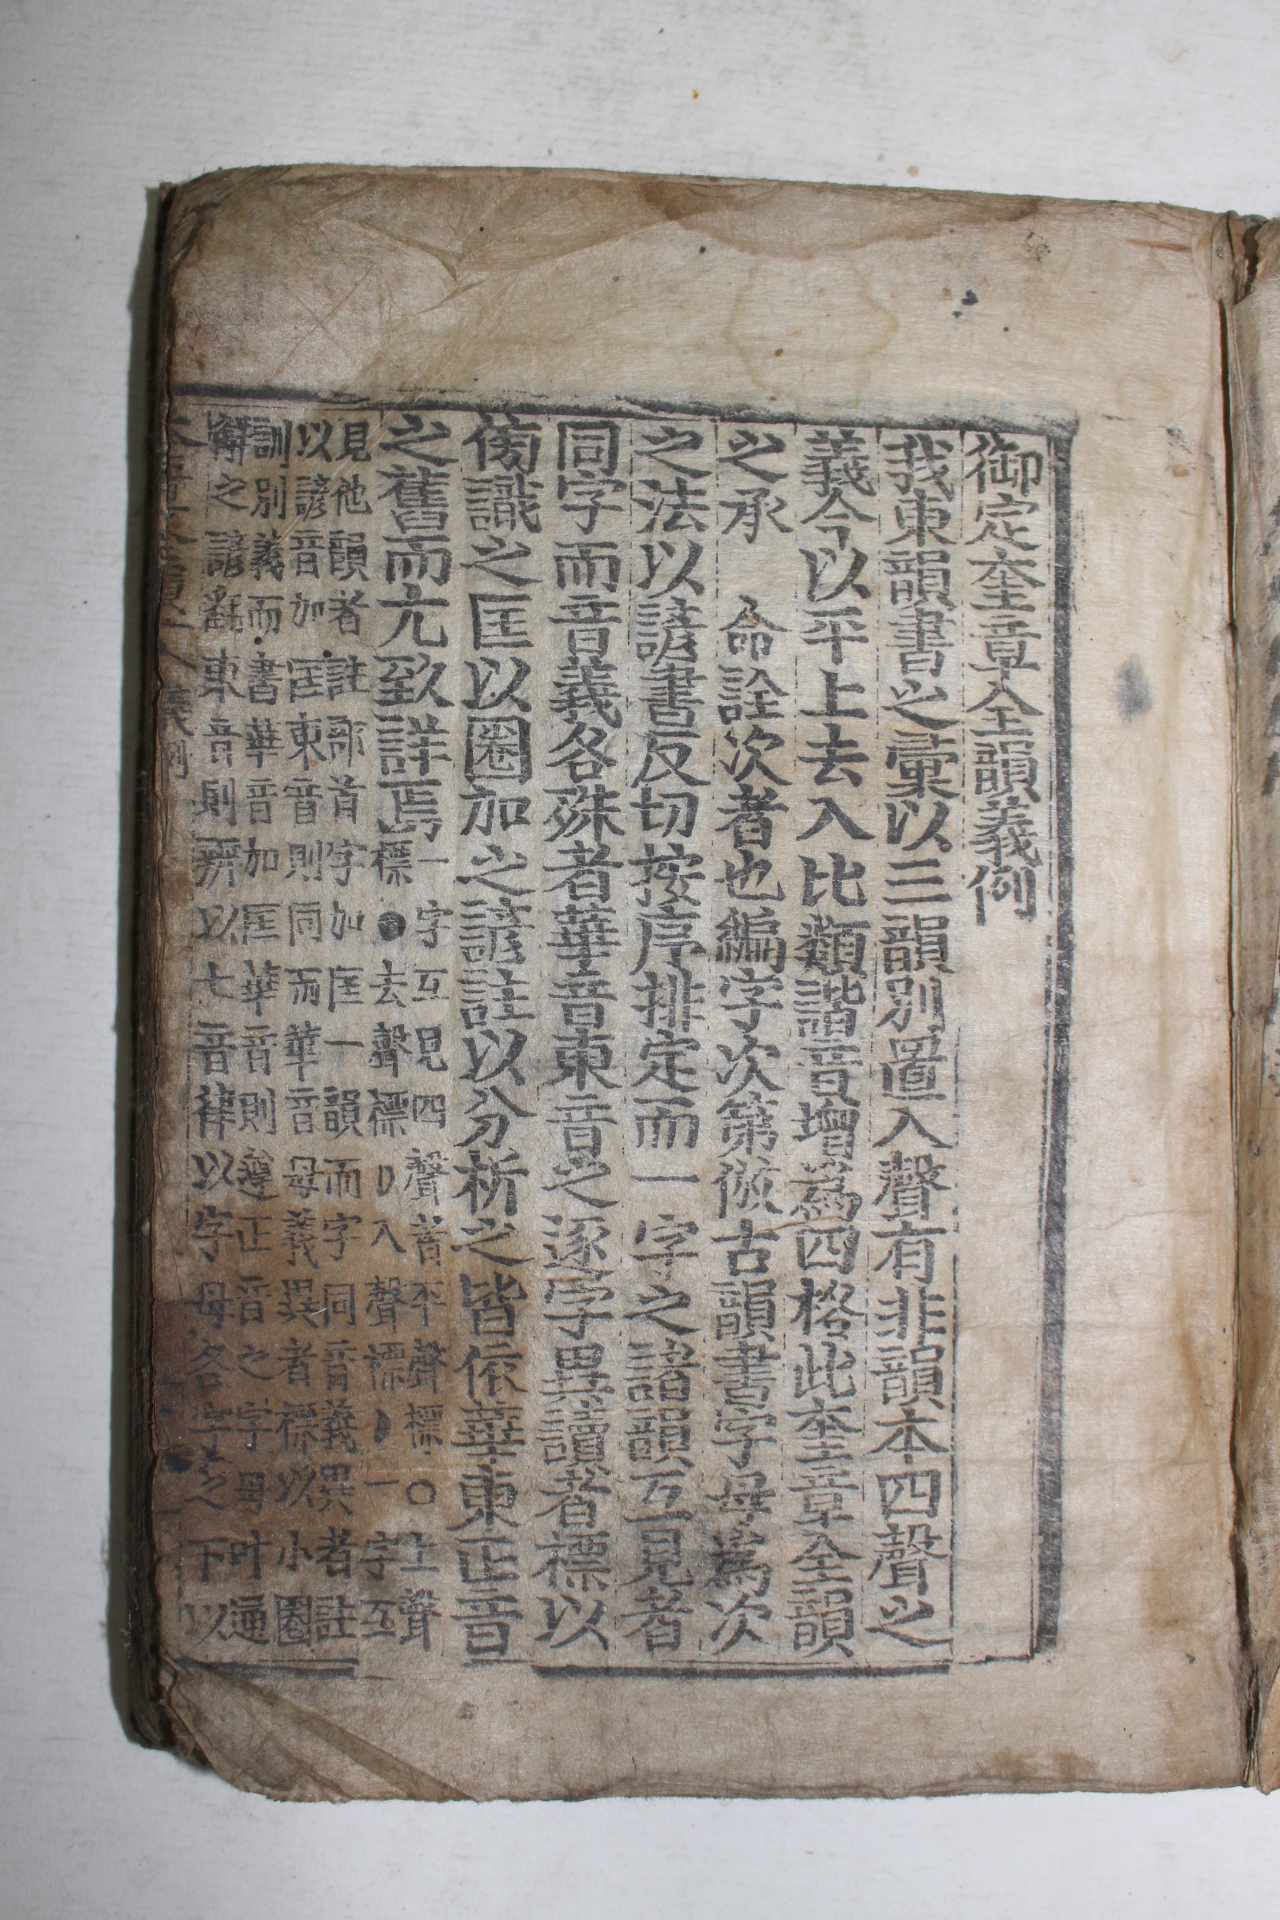 御定奎章全韻義例
我東韻書之彙以三韻別置入聲有非韻本四聲之
義今以平上去入比類諧音增爲四格此奎章全韻
之承　命詮次者也編字次第倣古韻書字母爲次
之法以諺書反切按序排定而一字之諸韻互見者
同字而音義各殊者華音東音之逐字異讀者標以
傍識之匡以圈加之諺註以分析之皆依華東正音
之舊而尤致詳焉
一字互見四聲者平聲標○上聲
標●去聲標◗入聲標◗一字互
見他韻者註部首字加匡一韻而字同音義異者註
以諺音加匡東音則同而華音母義異者標以小圈
訓別義而書華音加匡華音則遵正音之字母叶通
解之諺 東音則辨以七音緯以字母各字之下以